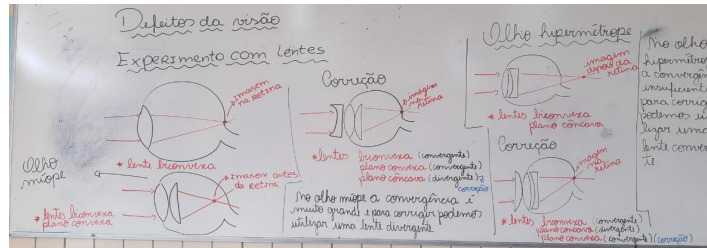 Defeitos da visão
Experimento com lentes
imagem
na retina
* lente biconvexa
Olho
míope
imagem antes
da retina
* lentes biconvexa
plano convexa
Correção
imagem
na
retina
* lentes biconvexa (convergente)
plano convexa (convergente)
plano côncava (divergente)
correção
No olho míope a convergência é
muito grande e para corrigir podemos
utilizar uma lente divergente
Olho hipermétrope
imagem
depois da
retina
* lentes biconvexa
plano côncava
Correção
imagem
na
retina
* lentes biconvexa (convergente)
plano côncava (divergente)
plano convexa (convergente) (correção)
No olho
hipermétro
a convergên
insuficient
para corrigi
podemos uti
lizar uma
lente conver
te